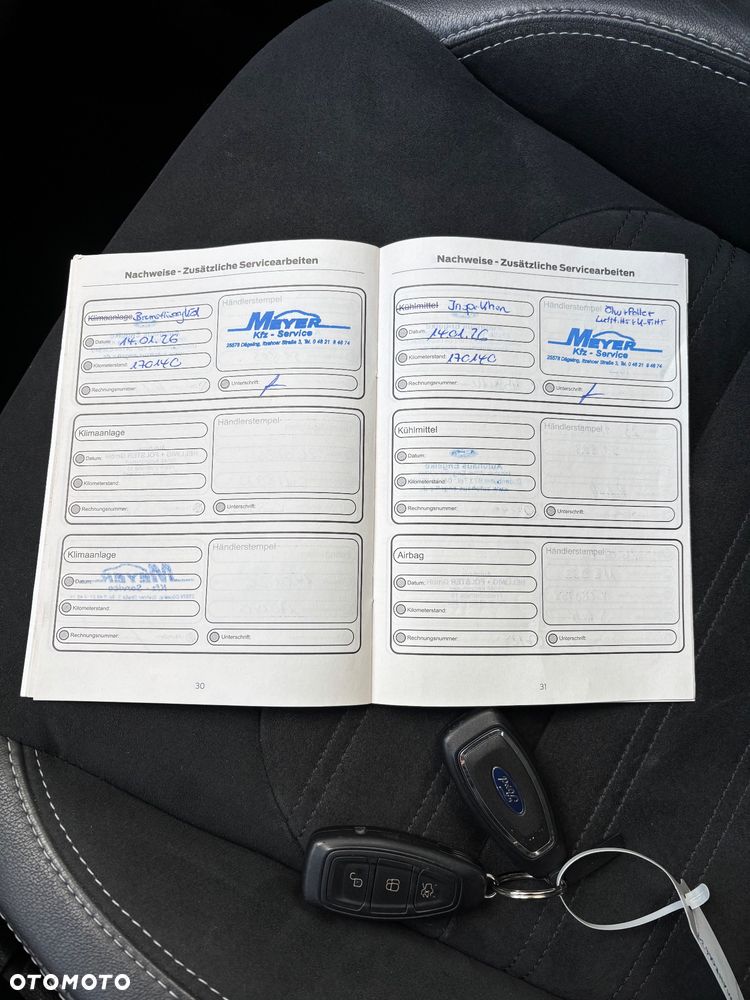 Nachweise - Zusätzliche Servicearbeiten
Klimaanlage Bremsflüssigkeit
Datum: 14.01.26
Kilometerstand: 170140
Rechnungsnummer:
Händlerstempel
MEYER
Kfz - Service
25578 Dägeling, Itzehoer Straße 3, Tel. 0 48 21 8 46 74
Unterschrift:
Klimaanlage
Datum:
Kilometerstand:
Rechnungsnummer:
Händlerstempel
Unterschrift:
Klimaanlage
Datum:
Kilometerstand:
Rechnungsnummer:
Händlerstempel
Unterschrift:
30
Nachweise - Zusätzliche Servicearbeiten
Kühlmittel Inspektion
Datum: 14.01.26
Kilometerstand: 170140
Rechnungsnummer:
Händlerstempel
MEYER
Kfz - Service
25578 Dägeling, Itzehoer Straße 3, Tel. 0 48 21 8 46 74
Unterschrift:
Kühlmittel
Datum:
Kilometerstand:
Rechnungsnummer:
Händlerstempel
Unterschrift:
Airbag
Datum:
Kilometerstand:
Rechnungsnummer:
Händlerstempel
Unterschrift:
31
Ford
OTOMOTO